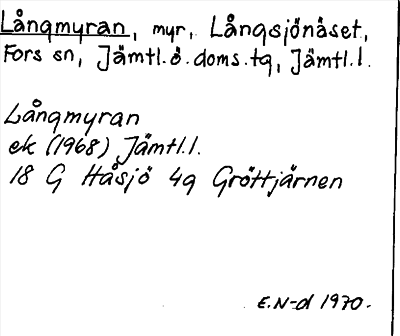 Långmyran, myr, Långsjönäset,
Fors sn, Jämtl. ö. doms. tg, Jämtl. l.
Långmyran
ek (1968) Jämtl. l.
18 G Håsjö 4g Gröttjärnen
E. N-d 1970.